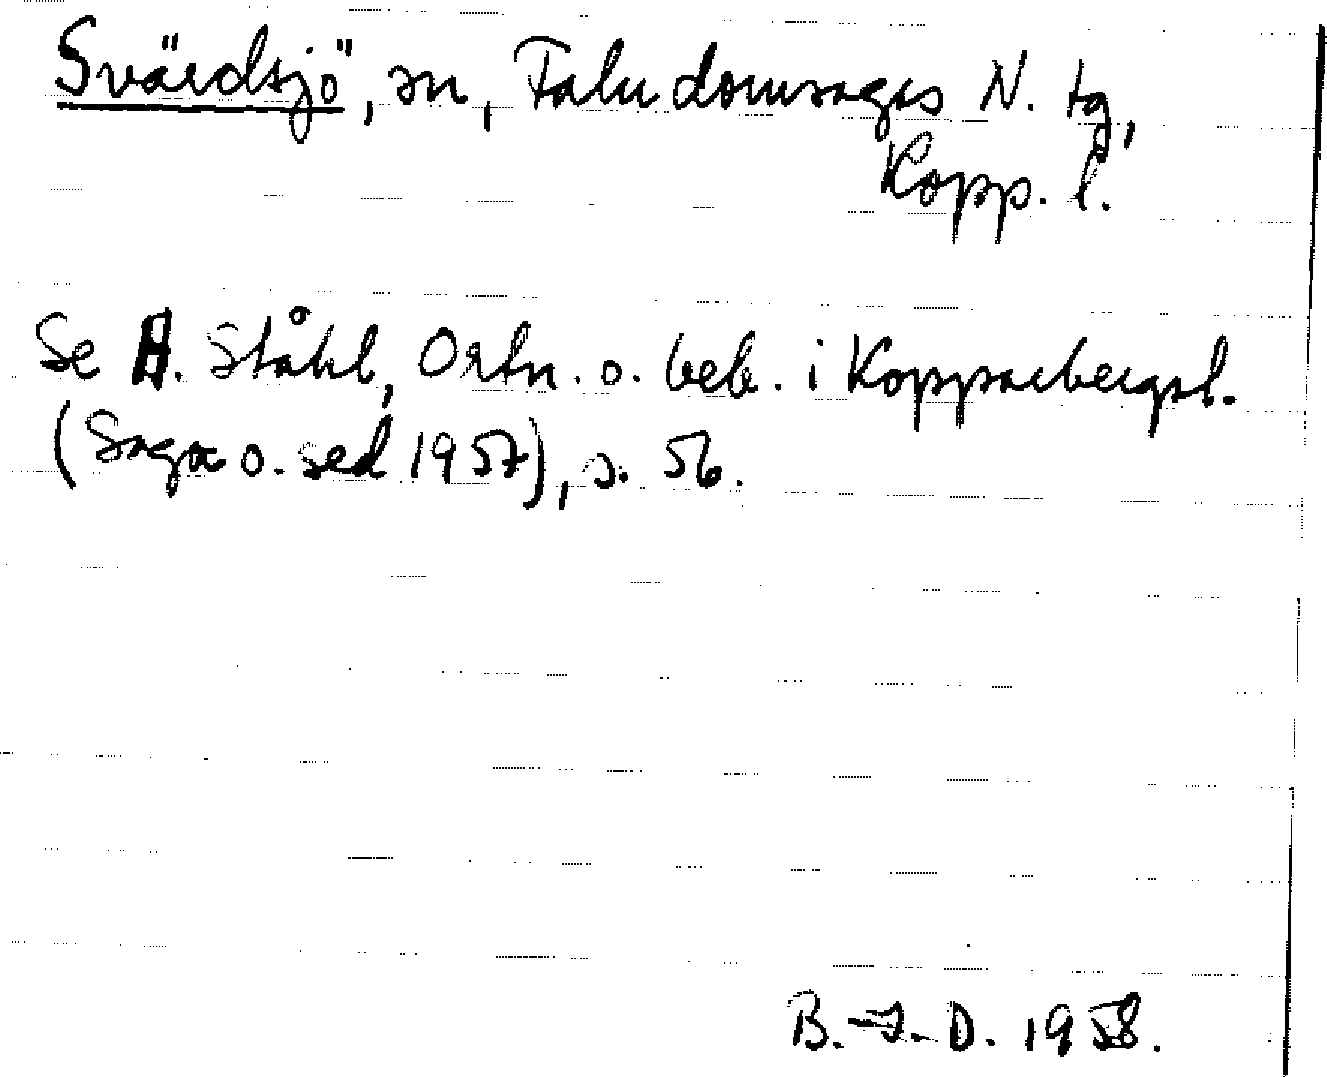 Svärdsjö, sn, Falu domsagas N. tg,
Kopp. l.
Se H. Ståhl, Ortn. o. beb. i Kopparbergsl.
(Saga o. sed 1957), s. 56.
B.-I. D. 1958.